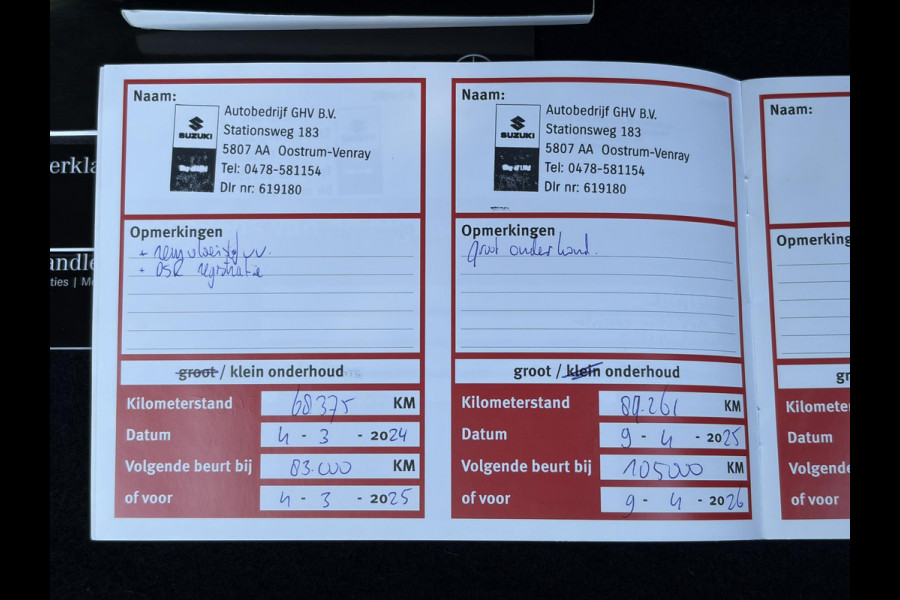 erkla
andle
ties | M
Naam:
SUZUKI
Autobedrijf GHV B.V.
Stationsweg 183
5807 AA Oostrum-Venray
Tel: 0478-581154
Dlr nr: 619180
Opmerkingen
+ remvloeistof vv.
+ OSR registratie
groot / klein onderhoud
Kilometerstand 68375 KM
Datum 4 - 3 - 2024
Volgende beurt bij 83.000 KM
of voor 4 - 3 - 2025
Naam:
SUZUKI
Autobedrijf GHV B.V.
Stationsweg 183
5807 AA Oostrum-Venray
Tel: 0478-581154
Dlr nr: 619180
Opmerkingen
groot onderhoud.
groot / klein onderhoud
Kilometerstand KM
Datum 9 - 4 - 2025
Volgende beurt bij 105000 KM
of voor 9 - 4 - 2026
Naam:
Opmerking
gr
Kilomete
Datum
Volgend
of voor